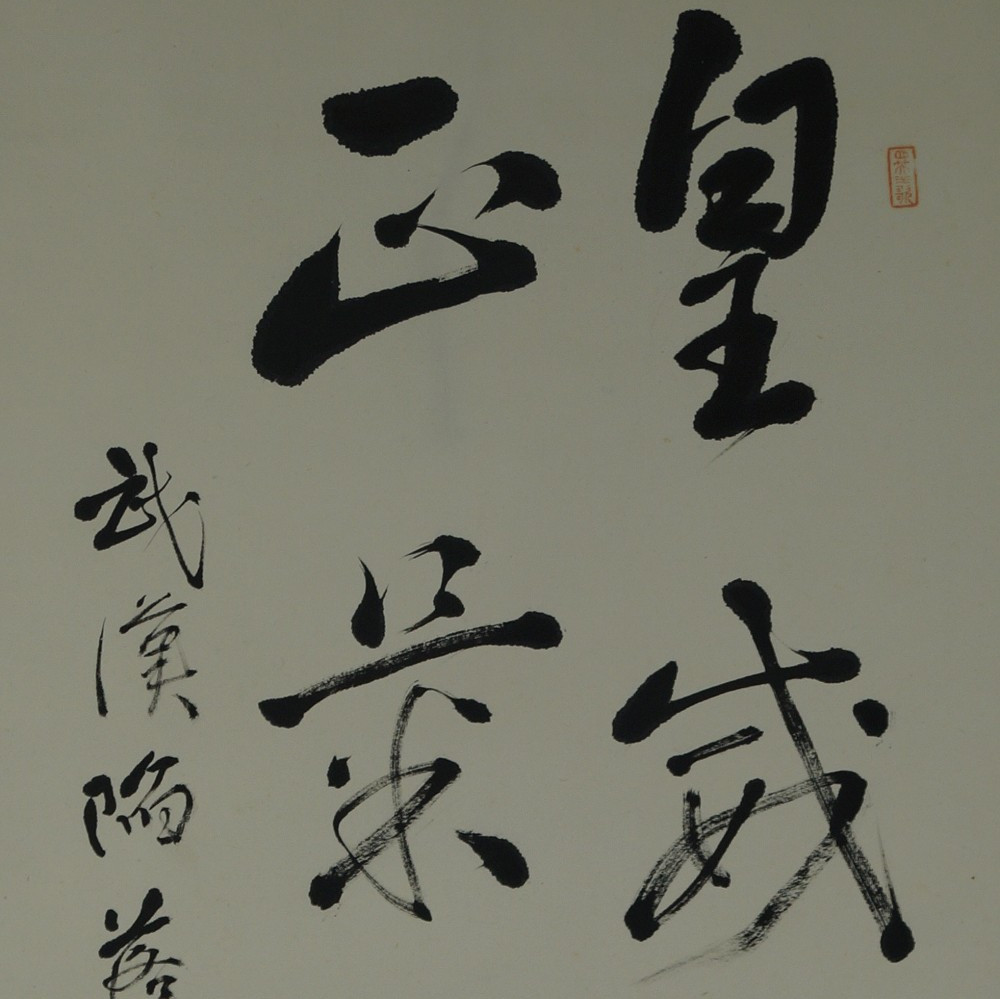 皇威
正
武漢陥落